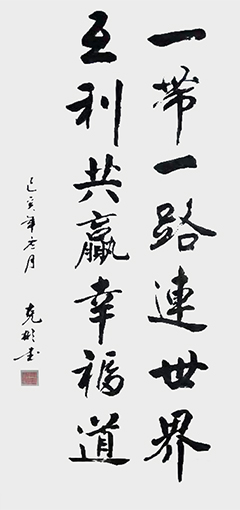 一帶一路連世界
互利共贏幸福道
己亥年冬月
克彬书